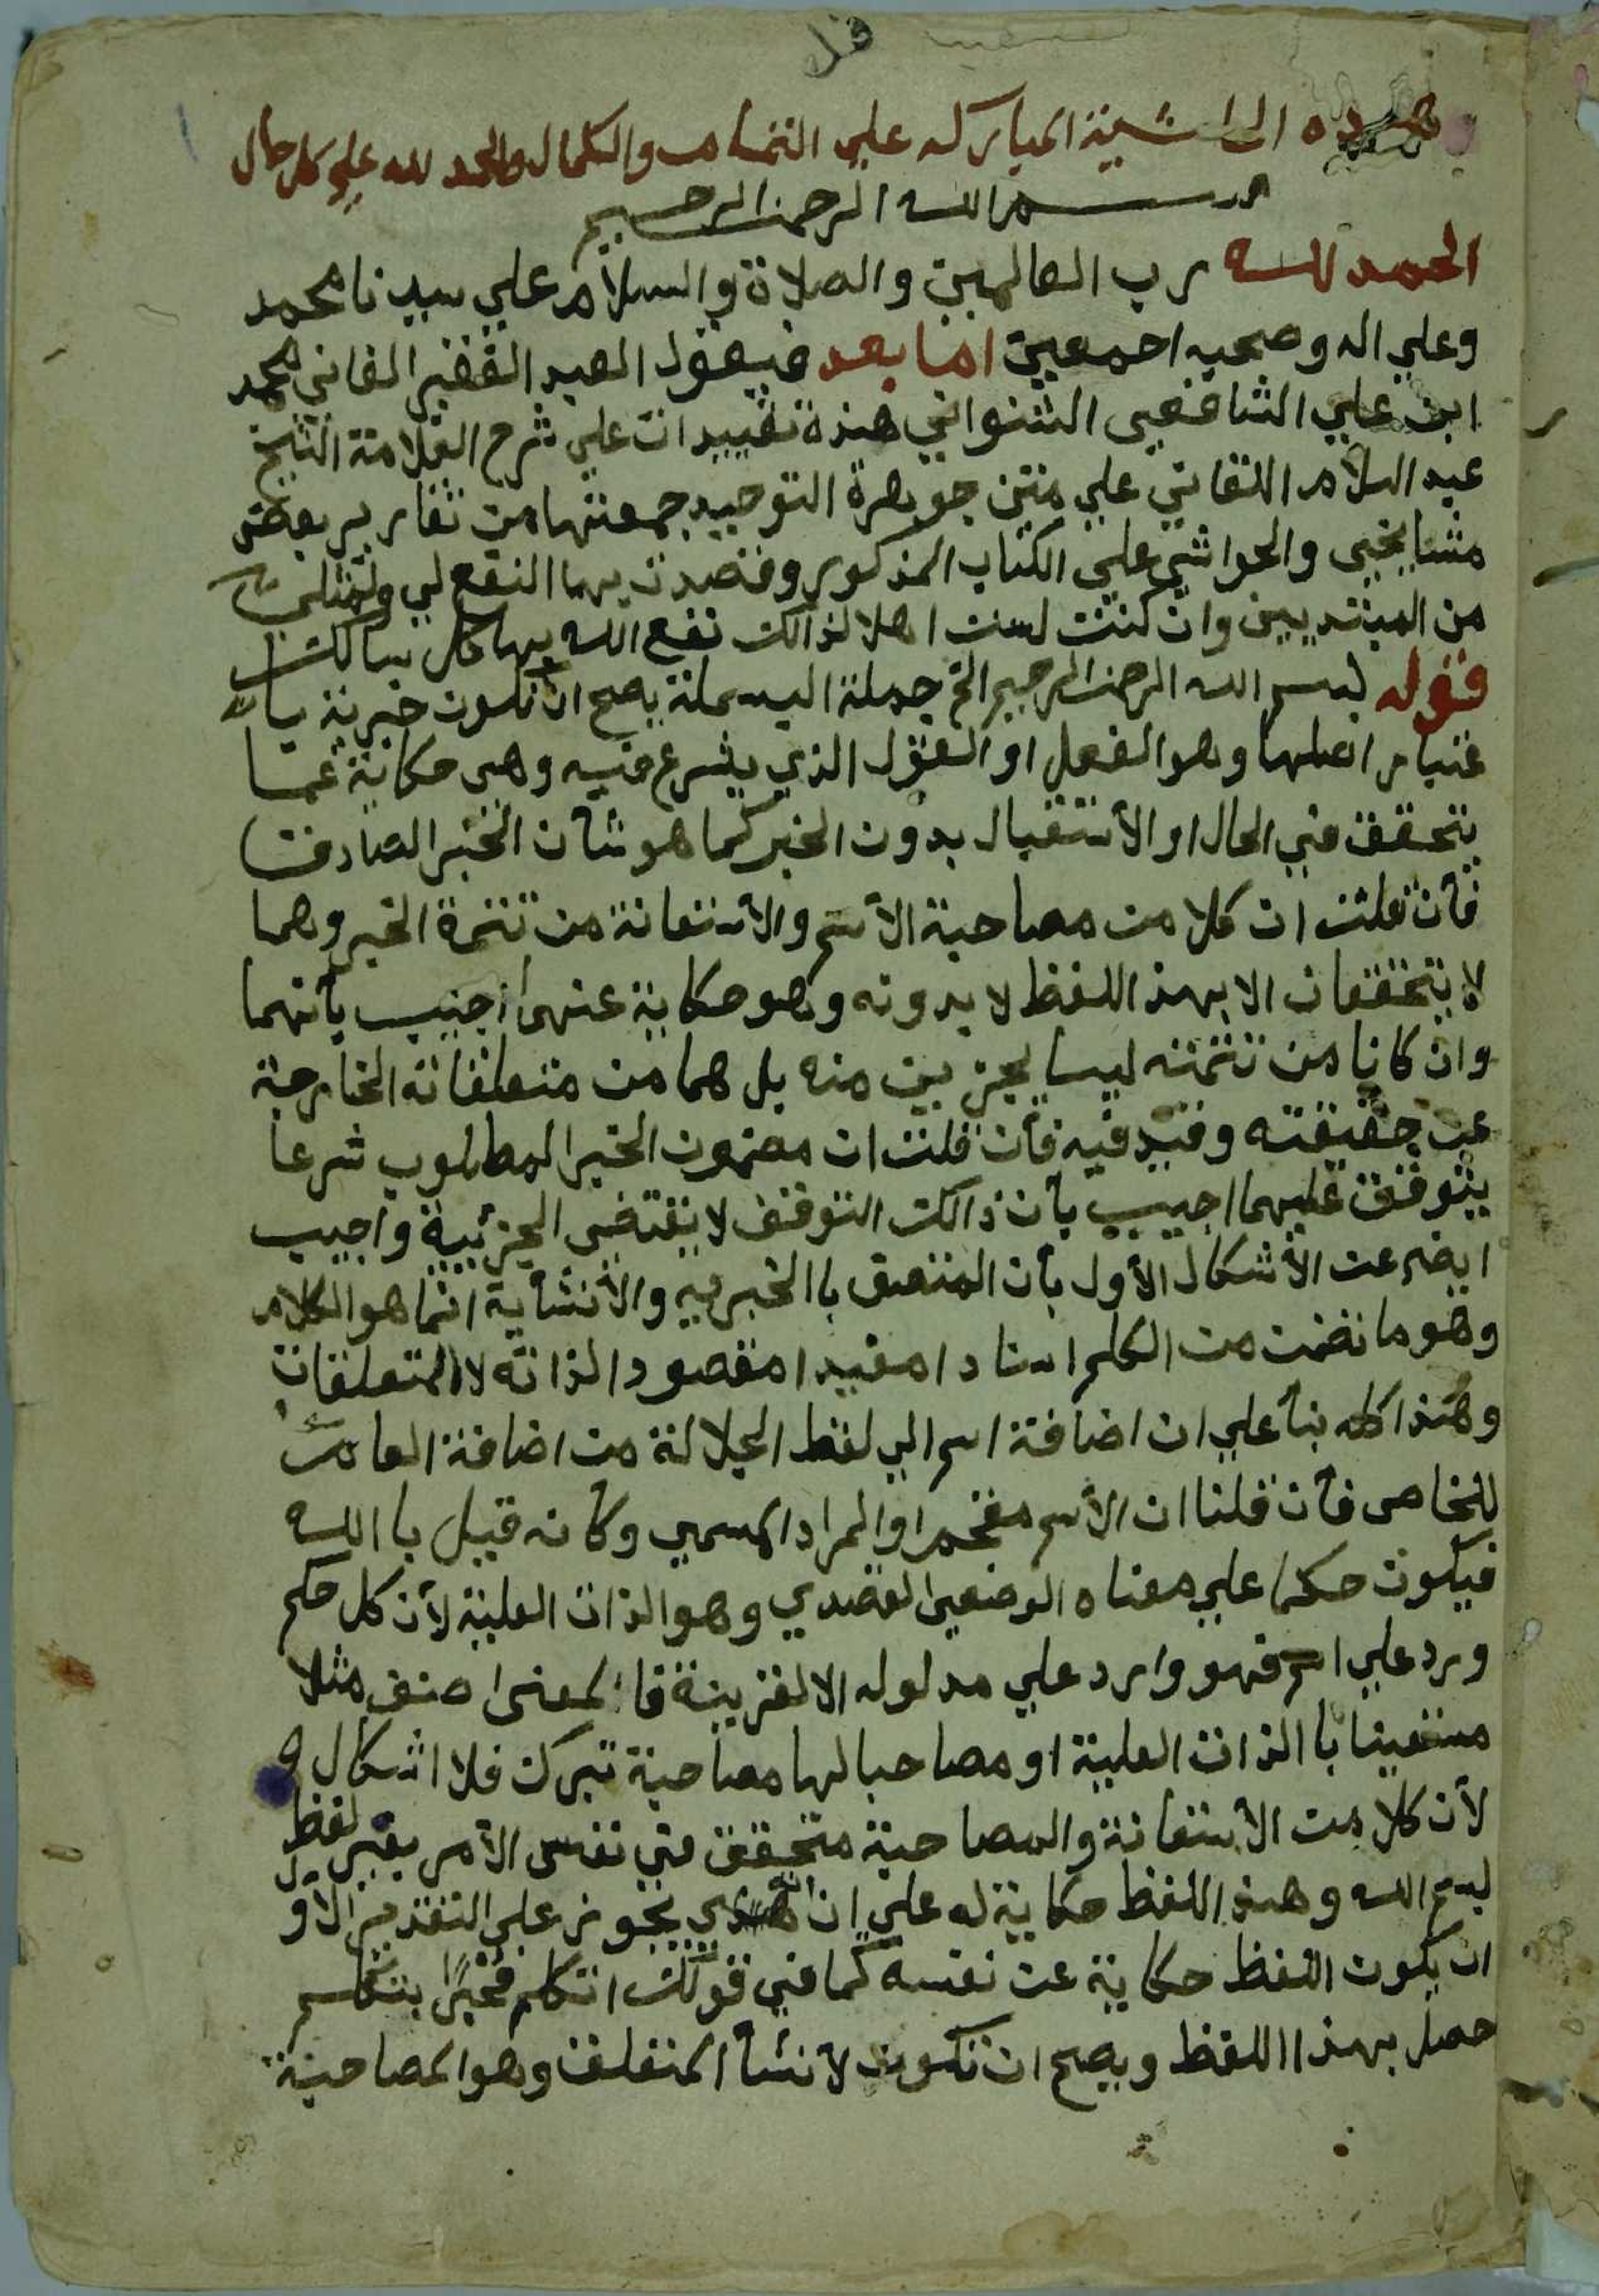 قل
هذه الحاشية المباركه علي التمام والكمال والحمد لله علي كل حال
بسم الله الرحمن الرحيم
الحمد لله رب العالمين والصلاة والسلام علي سيدنا محمد
وعلي اله وصحبه اجمعين اما بعد فيقول العبد الفقير الفاني محمد
ابن علي الشافعي الشنواني هذه تقييدات علي شرح العلامة الشيخ
عبد السلام اللقاني علي متن جوهرة التوحيد جمعتها من تقارير بعض
مشايخي والحواشي علي الكتاب المذكور وقصدت بها النفع لي ولمثلي
من المبتديين وان كنت لست اهلا لذالك نفع الله بها كل سالك
قوله بسم الله الرحمن الرحيم الخ جملة البسملة يصح ان تكون خبرية با
عتبار اصلها وهو الفعل او القول الذي يشرع فيه وهى حكاية عما
يتحقق في الحال او الأستقبال بدون الخبر كما هو شأن الخبر الصادق
فأن قلت ان كلا من مصاحبة الأسم والأستعانة من تتمة الخبر وهما
لا يتحققان الا بهذا اللفظ لا بدونه وهو حكاية عنهما اجيب بأنهما
وان كانا من تتمته ليسا بجزيين منه بل هما من متعلقاته الخارجة
عن حقيقته وقيد فيه فأن قلت ان مضمون الخبر المطلوب شرعا
يتوقف عليهما اجيب بأن ذالك التوقف لا يقتضي الجزئيية واجيب
ايضا عن الأشكال الأول بأن المتصق باالخبريه والأنشأية انما هو الكلام
وهو ما تضمن من الكلم اسنادا مفيدا مقصودا لذاته لا المتعلقات
وهذا كله بنأ علي ان اضافة اسم الي لفظ الجلالة من اضافة العام
للخاص فأن قلنا ان الأسم مقحم او المراد المسمي وكأنه قيل باالله
فيكون حكما علي معناه الوضعي القصدي وهو الذات العلية لأن كل حكم
ورد علي اسم فهو وارد علي مدلوله الا لقرينة فالمعنى اصنف مثلا
مستعينا باالذات العلية او مصاحبا لها مصاحبة تبرك فلا اشكال
لأن كلا من الأستعانة والمصاحبة متحقق في نفس الأمر بغير لفظ
بسم الله وهذا اللفظ حكاية له علي ان يجوز على التقدير الاول
ان يكون اللفظ حكاية عن نفسه كما في قولك اتكلم مخبرًا بتكلم
حصل بهذا اللفظ ويصح ان تكون لأنشأ المتعلق وهو المصاحبة